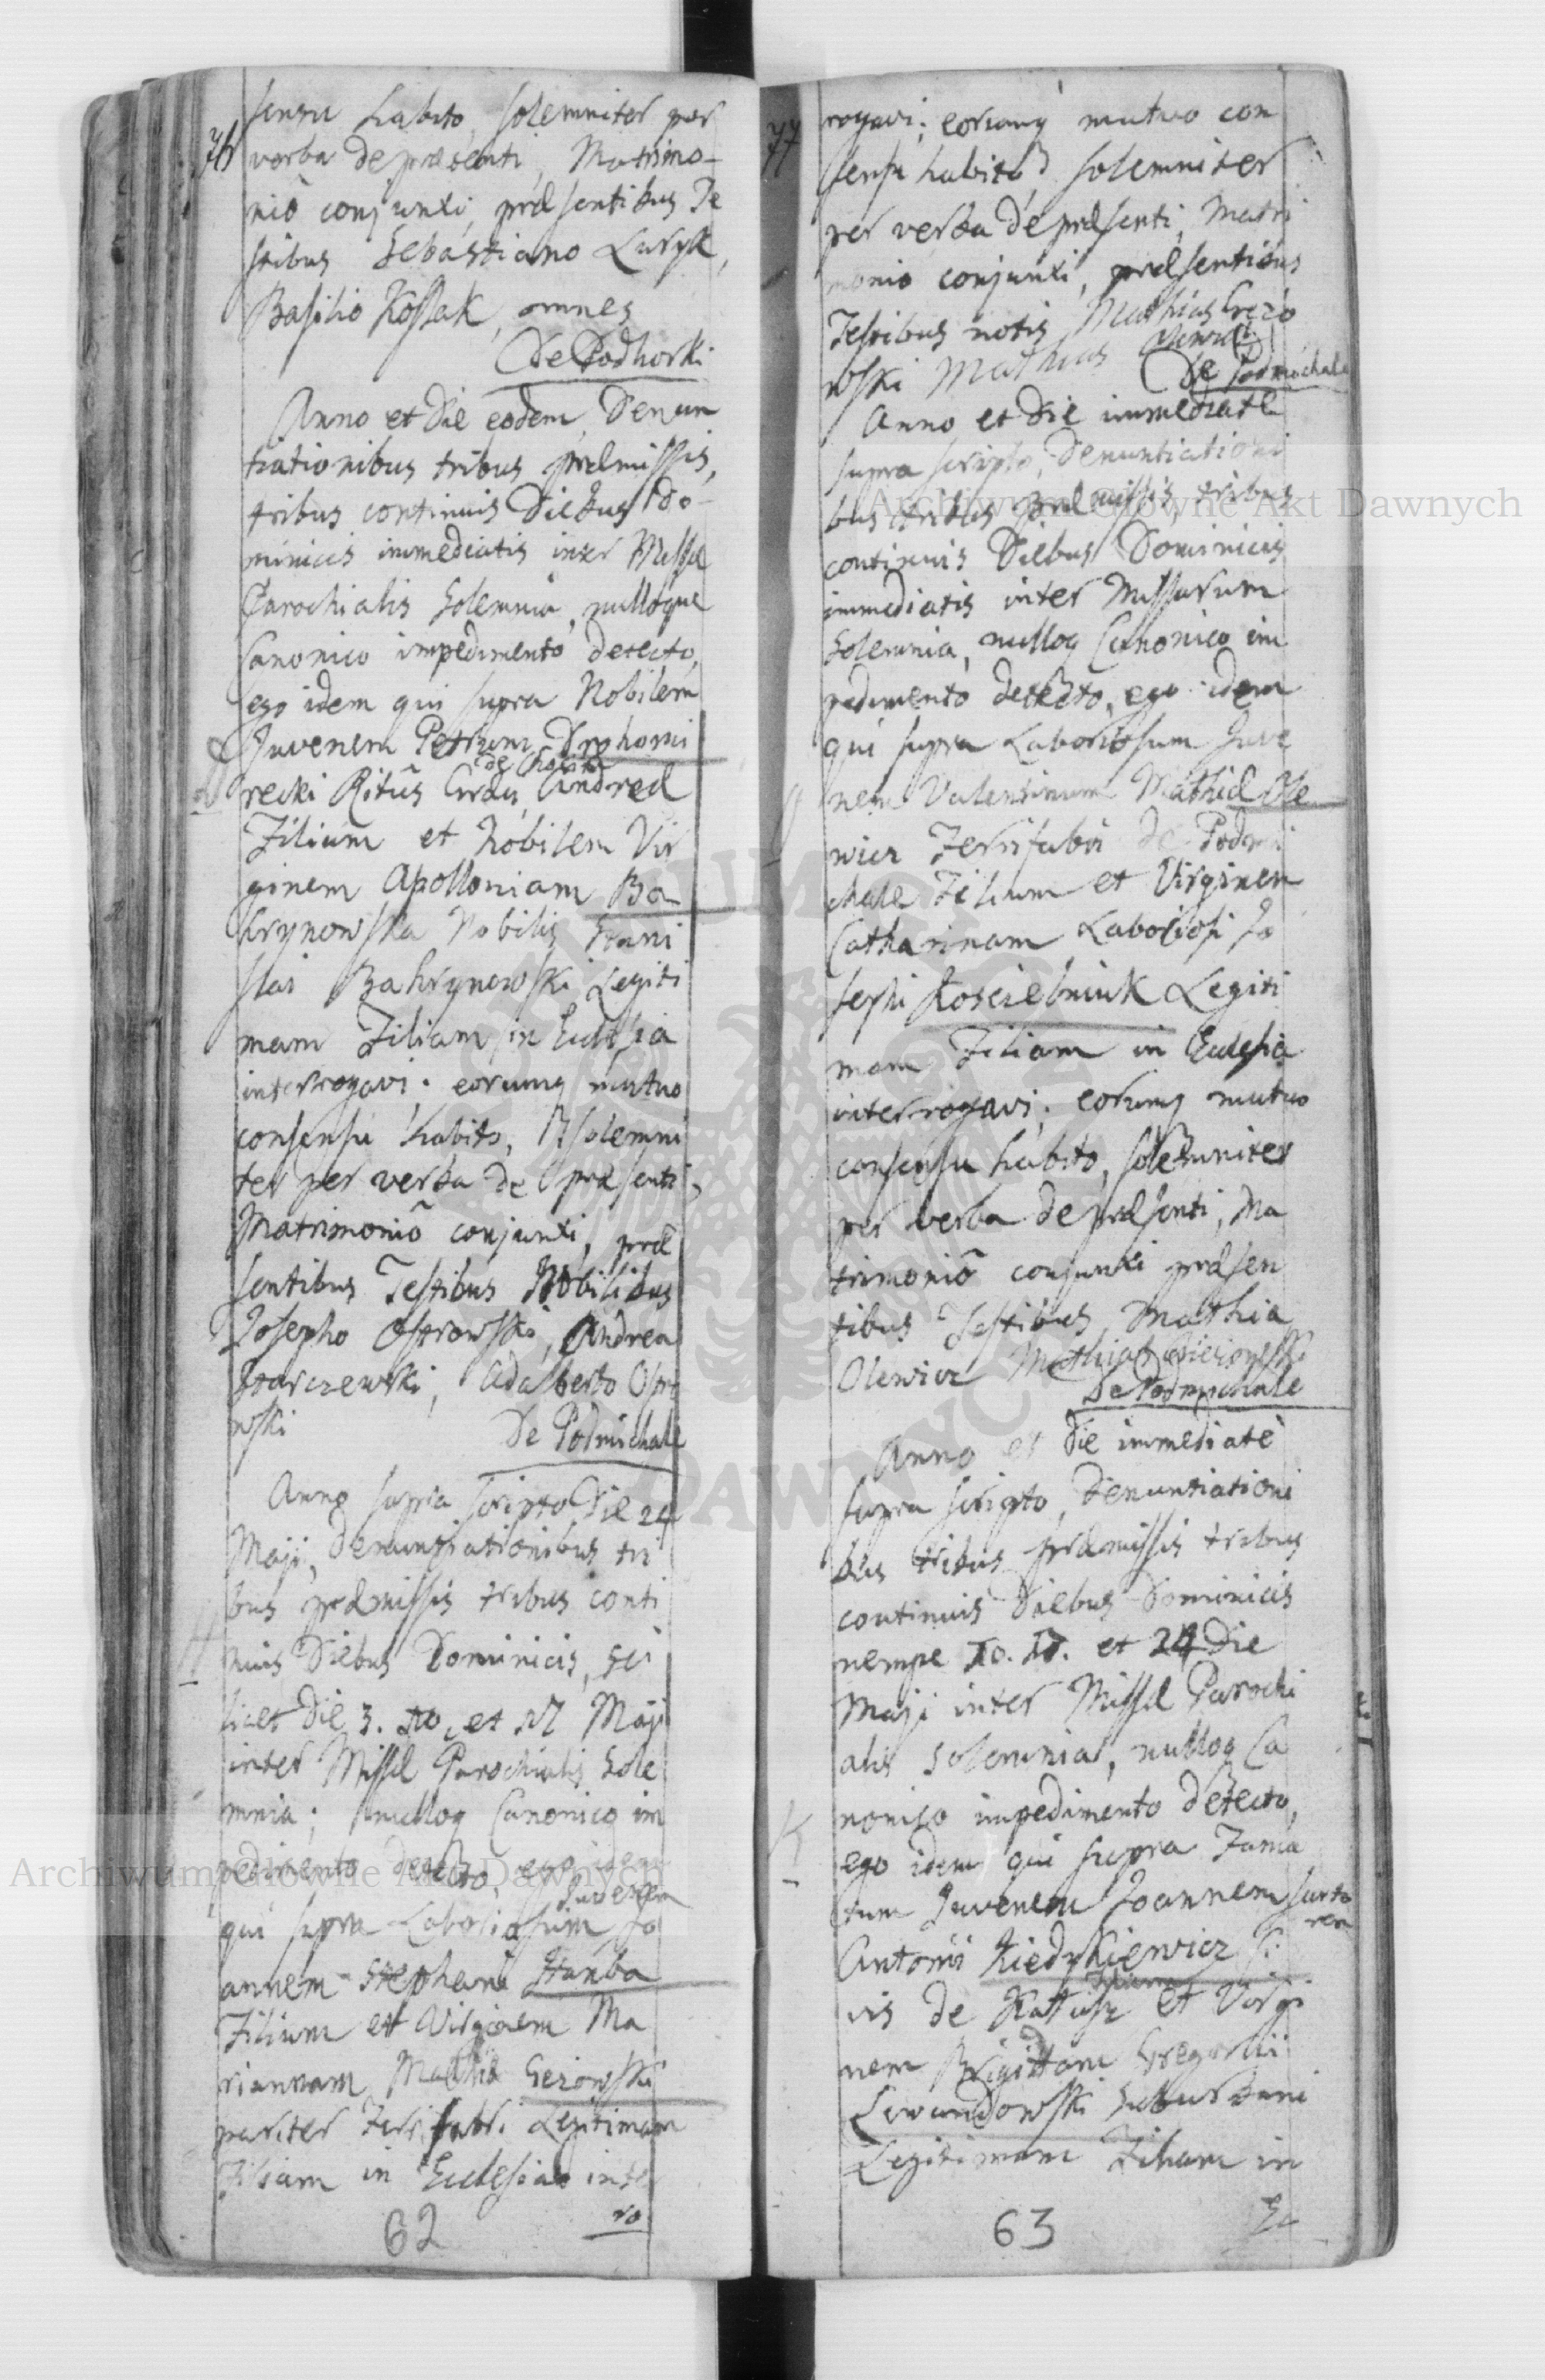 76
sensu habito, solemniter per
verba de præsenti, Matrimo-
niô conjunxi, præsentibus Te
stibus Sebastiano Luryk,
Basilio Kossak, omnes
De Podhorki
Anno et Die eodem, Denun
tiationibus tribus præmissis,
tribus continuis Diebus Do-
minicis immediatis inter Missæ
Parochialis Solemnia, nulloque
Canonico impedimento detecto,
ego idem qui supra Nobilem
Juvenem Petrum Drohomi
de
recki Ritûs Græci, Andreæ
Filium et Nobilem Vir
ginem Apolloniam Ba
hrynowska Nobilis Stani
slai Bahrynowski Legiti
mam Filiam in Ecclesia
interrogavi; eorumq mutuo
consensu habito, solemni
ter per verba de præsenti,
Matrimoniô conjunxi, præ
sentibus Testibus Nobilibus
Josepho Ostrowski, Andrea
Harczewski, Adalberto Ostro
wski
De Podmichale
Anno supra scripto Die 24
Maji, Denuntiationibus tri
bus præmissis tribus conti
nuis Diebus Dominicis, sci
licet Die 3. 10. et 17 Maji
inter Missæ Parochialis Sole
mnia; nulloq Canonico im
pedimento detecto, ego idem
Juvenem
qui supra Laboriosum Jo
annem Stephani Hanba
Filium et Virginem Ma
riannam Mathiæ Gezowski
pariter Ferrifabri Legitimam
Filiam in Ecclesia inte
ro
62
77
rogavi; eorumq mutuo con
sensu habito, solemniter
per verba de præsenti, Matri
monio conjunxi, præsentibus
Testibus notis Mathias
wski Mathias
De Podmichale
Anno et Die immediate
supra scripto, Denuntiationi
bus tribus præmissis, tribus
continuis Diebus Dominicis
immediatis inter Missarum
Solemnia, nulloq Canonico im
pedimento detecto, ego idem
qui supra Laboriosum Juve
nem Valentinum Mathiæ Ole
wicz Ferrifabri de Podmi
chale Filium et Virginem
Catharinam Laboriosi Jo
sephi Koscielniuk Legiti
mam Filiam in Ecclesia
interrogavi; eorumq mutuo
consensu habito, solemniter
per verba de præsenti, Ma
trimoniô conjunxi præsen
tibus Testibus Mathia
Olewicz Mathia
De Podmichale
Anno et Die immediatè
supra scripto, Denuntiationi
bus tribus præmissis tribus
continuis Diebus Dominicis
nempe 10. 17. et 24 Die
Maji inter Missæ Parochi
alis Solemnia, nulloq Ca
nonico impedimento detecto,
ego idem qui supra Fama
tum Juvenem Joannem Sarto
rem
Antonii Kiedykiewicz Ci
vis de Kałusz Filium et Virgi
nem Brigittam Gregorii
Lewandowski Suburbani
Legitimam Filiam in
63
Archiwum Główne Akt Dawnych
Archiwum Główne Akt Dawnych